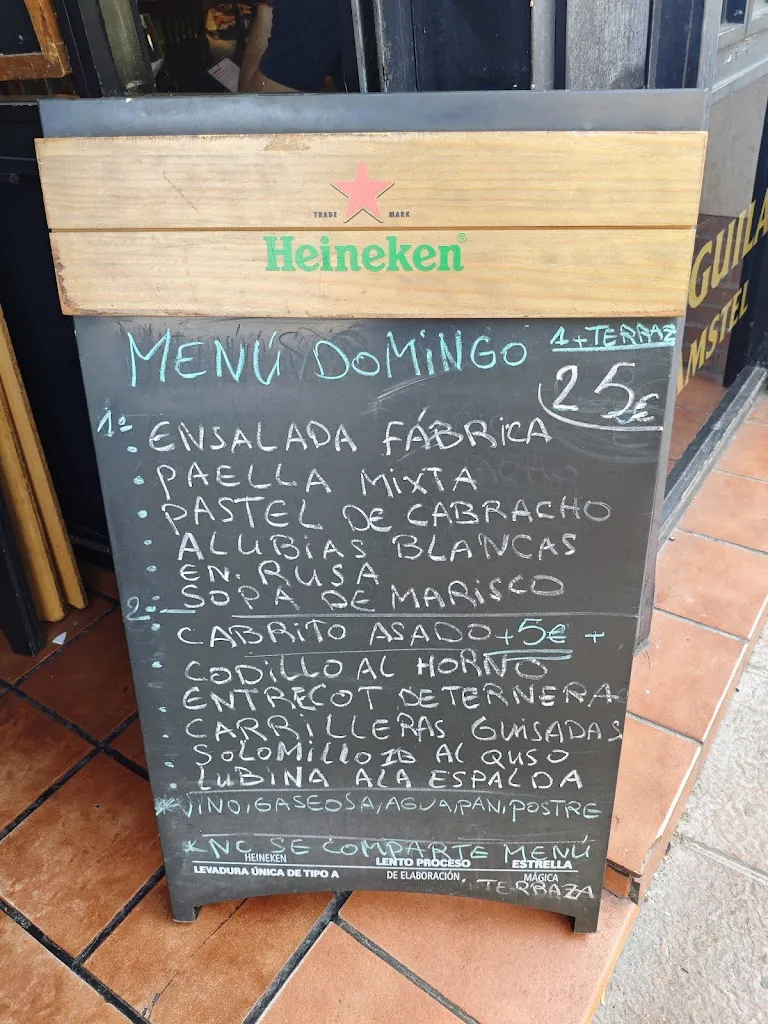 TRADE MARK
Heineken®
MENÚ DOMINGO
1+ TERRAZ
25€
1º
ENSALADA FÁBRICA
PAELLA MIXTA
PASTEL DE CABRACHO
ALUBIAS BLANCAS
EN. RUSA
SOPA DE MARISCO
2º
CABRITO ASADO +5€ +
CODILLO AL HORNO
ENTRECOT DE TERNERA
CARRILLERAS GUISADAS
SOLOMILLO IB AL QUSO
LUBINA A LA ESPALDA
*VINO, GASEOSA, AGUA, PAN, POSTRE
*NO SE COMPARTE MENÚ
HEINEKEN LENTO PROCESO ESTRELLA
LEVADURA ÚNICA DE TIPO A DE ELABORACIÓN MÁGICA
TERRAZA
GUILA
AMSTEL